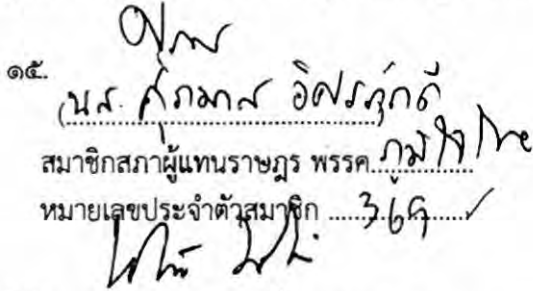 ๑๕.
(นส. ศุภมาส อิศรภักดี
สมาชิกสภาผู้แทนราษฎร พรรค ภูมิใจไทย
หมายเลขประจำตัวสมาชิก 369